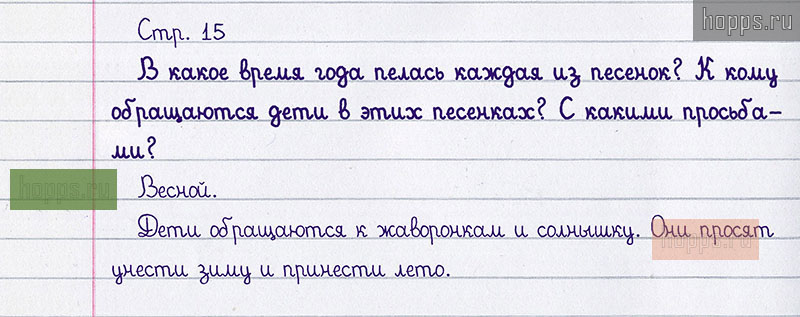 hopps.ru
Стр. 15
В какое время года пелась каждая из песенок? К кому
обращаются дети в этих песенках? С какими просьба-
ми?
hopps.ru
Весной.
Дети обращаются к жаворонкам и солнышку. Они просят
hopps.ru
унести зиму и принести лето.